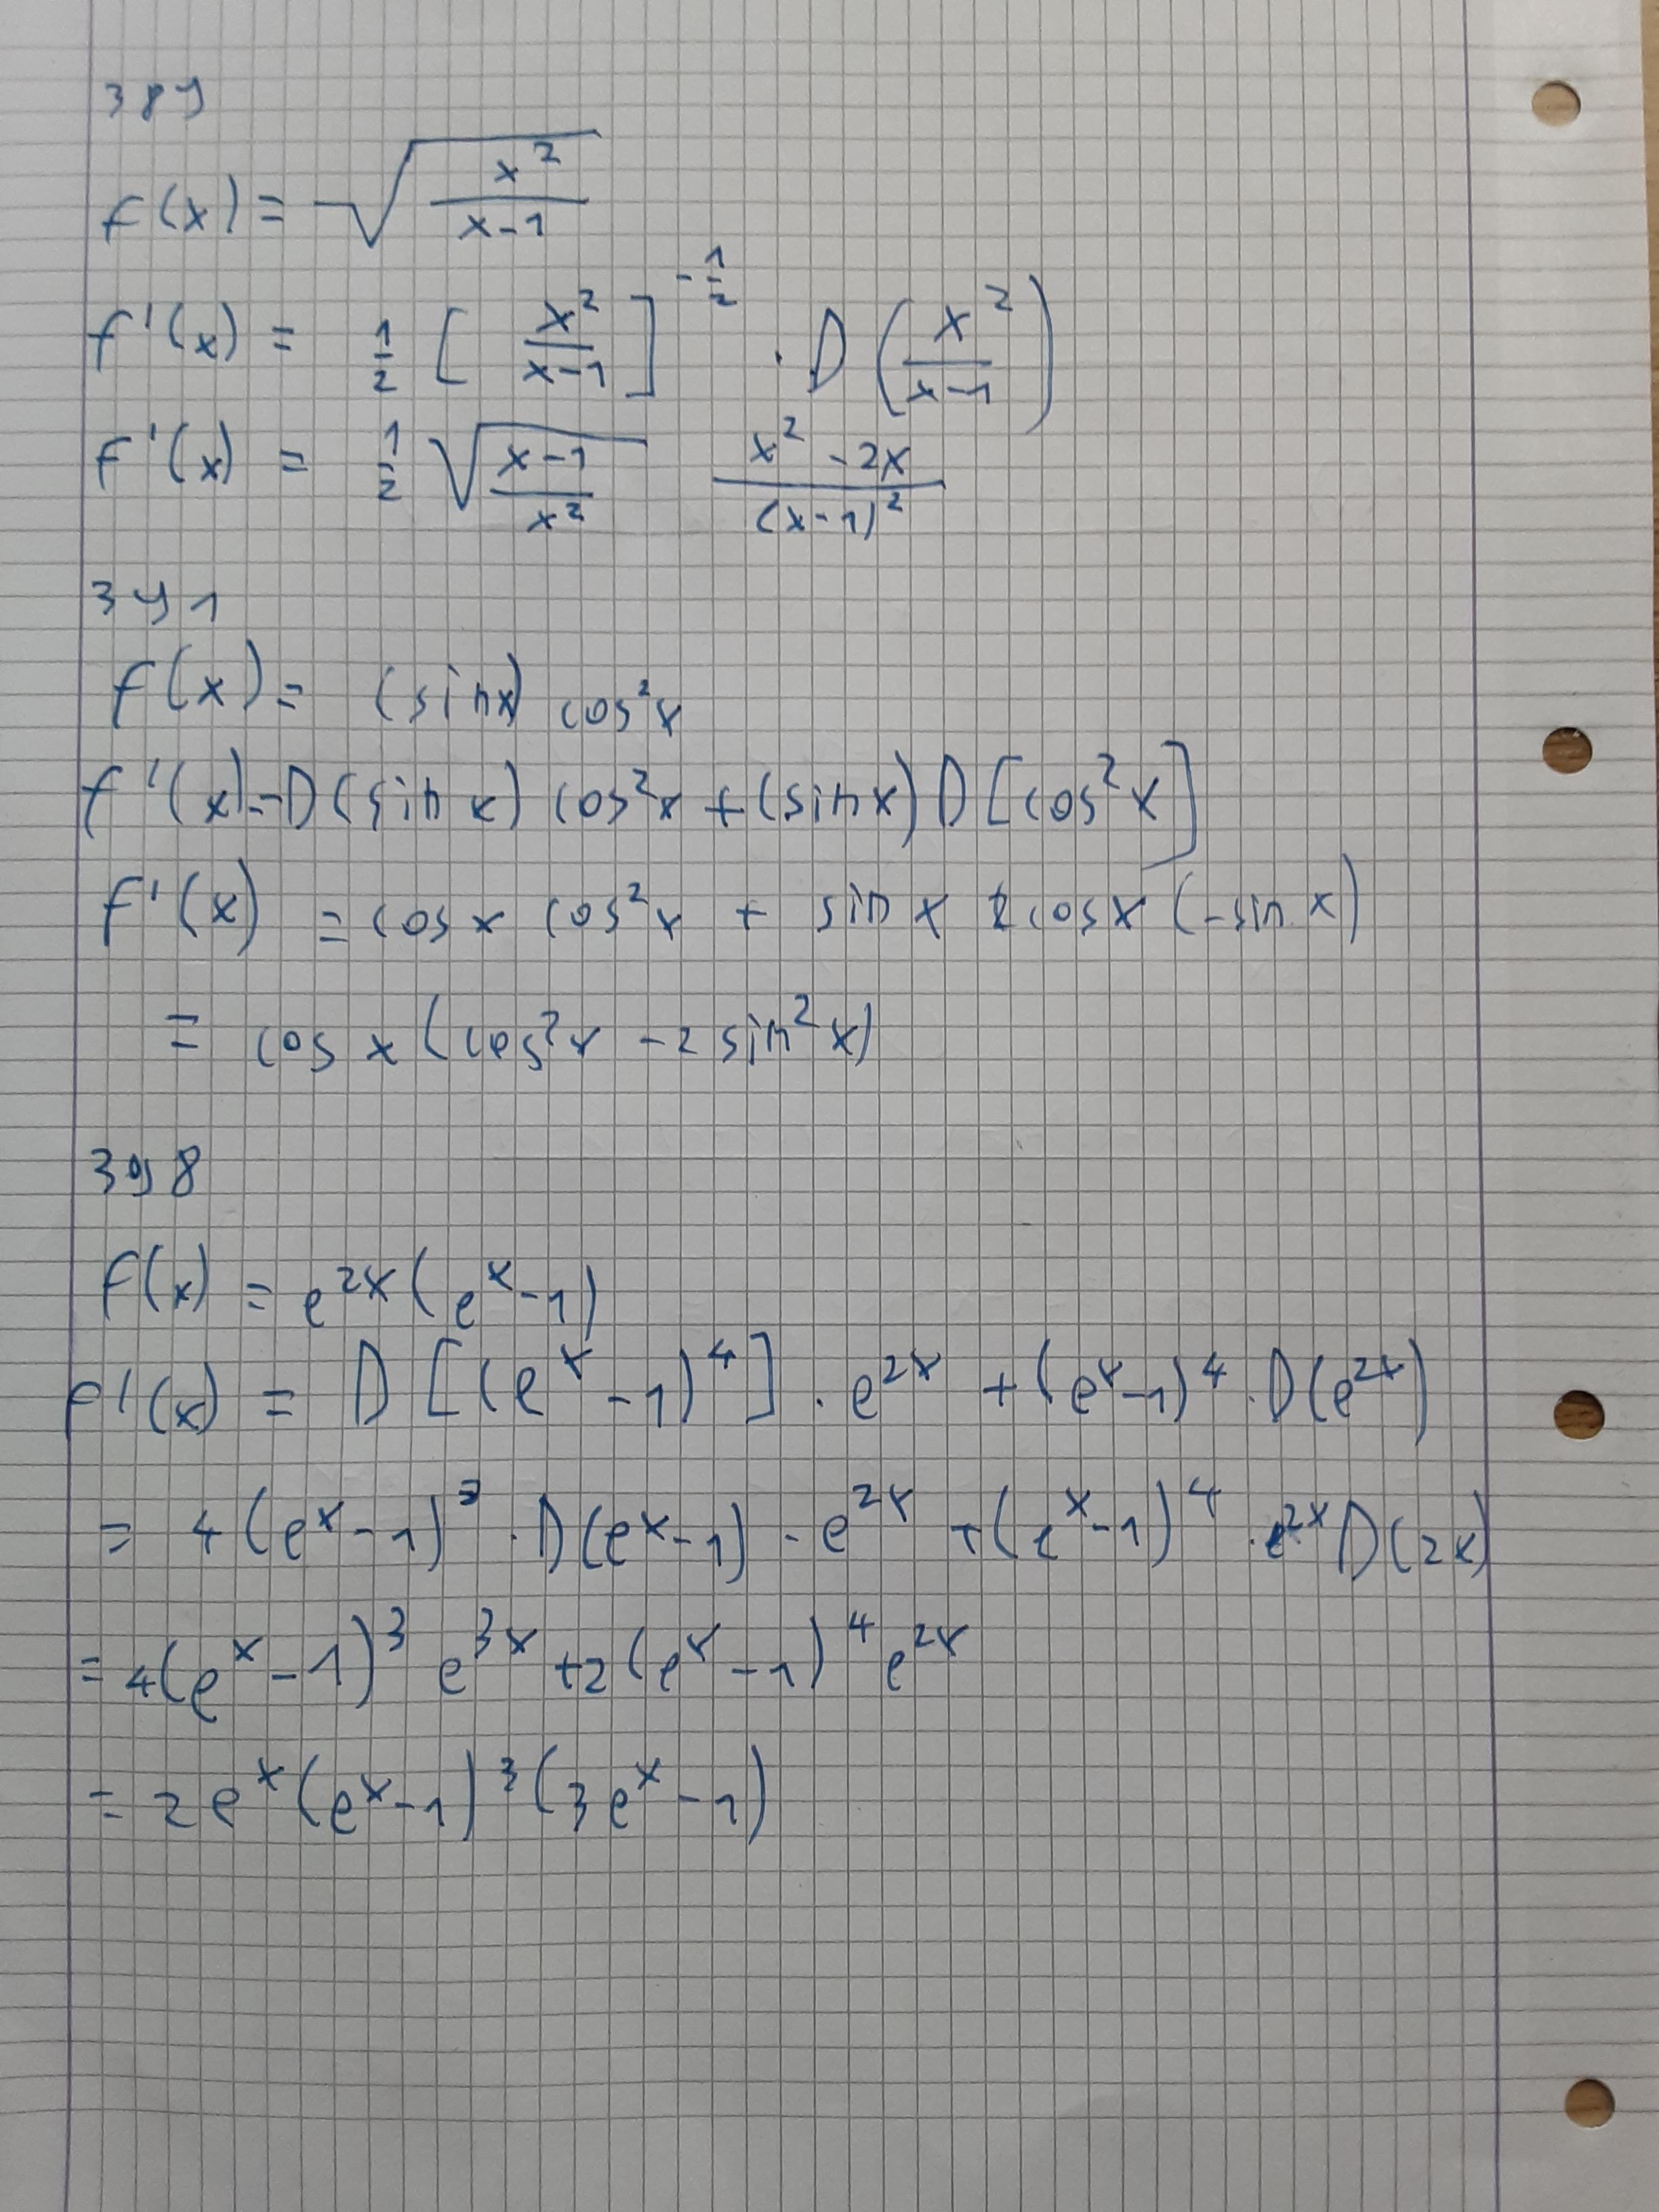 389
f(x) = √(x²/(x-1))
f'(x) = 1/2 [x²/(x-1)]^(-1/2) · D(x²/(x-1))
f'(x) = 1/2 √((x-1)/x²) (x²-2x)/(x-1)²
391
f(x) = (sin x) cos²x
f'(x) = D(sin x) cos²x + (sin x) D[cos²x]
f'(x) = cos x cos²x + sin x 2 cos x (-sin x)
= cos x (cos²x - 2 sin²x)
398
f(x) = e^(2x) (e^x - 1)
f'(x) = D[(e^x - 1)^4] · e^(2x) + (e^x - 1)^4 · D(e^(2x))
= 4(e^x - 1)^3 · D(e^x - 1) - e^(2x) + (e^x - 1)^4 · e^(2x) D(2x)
= 4(e^x - 1)^3 e^(3x) + 2(e^x - 1)^4 e^(2x)
= 2e^x (e^x - 1)^3 (3e^x - 1)